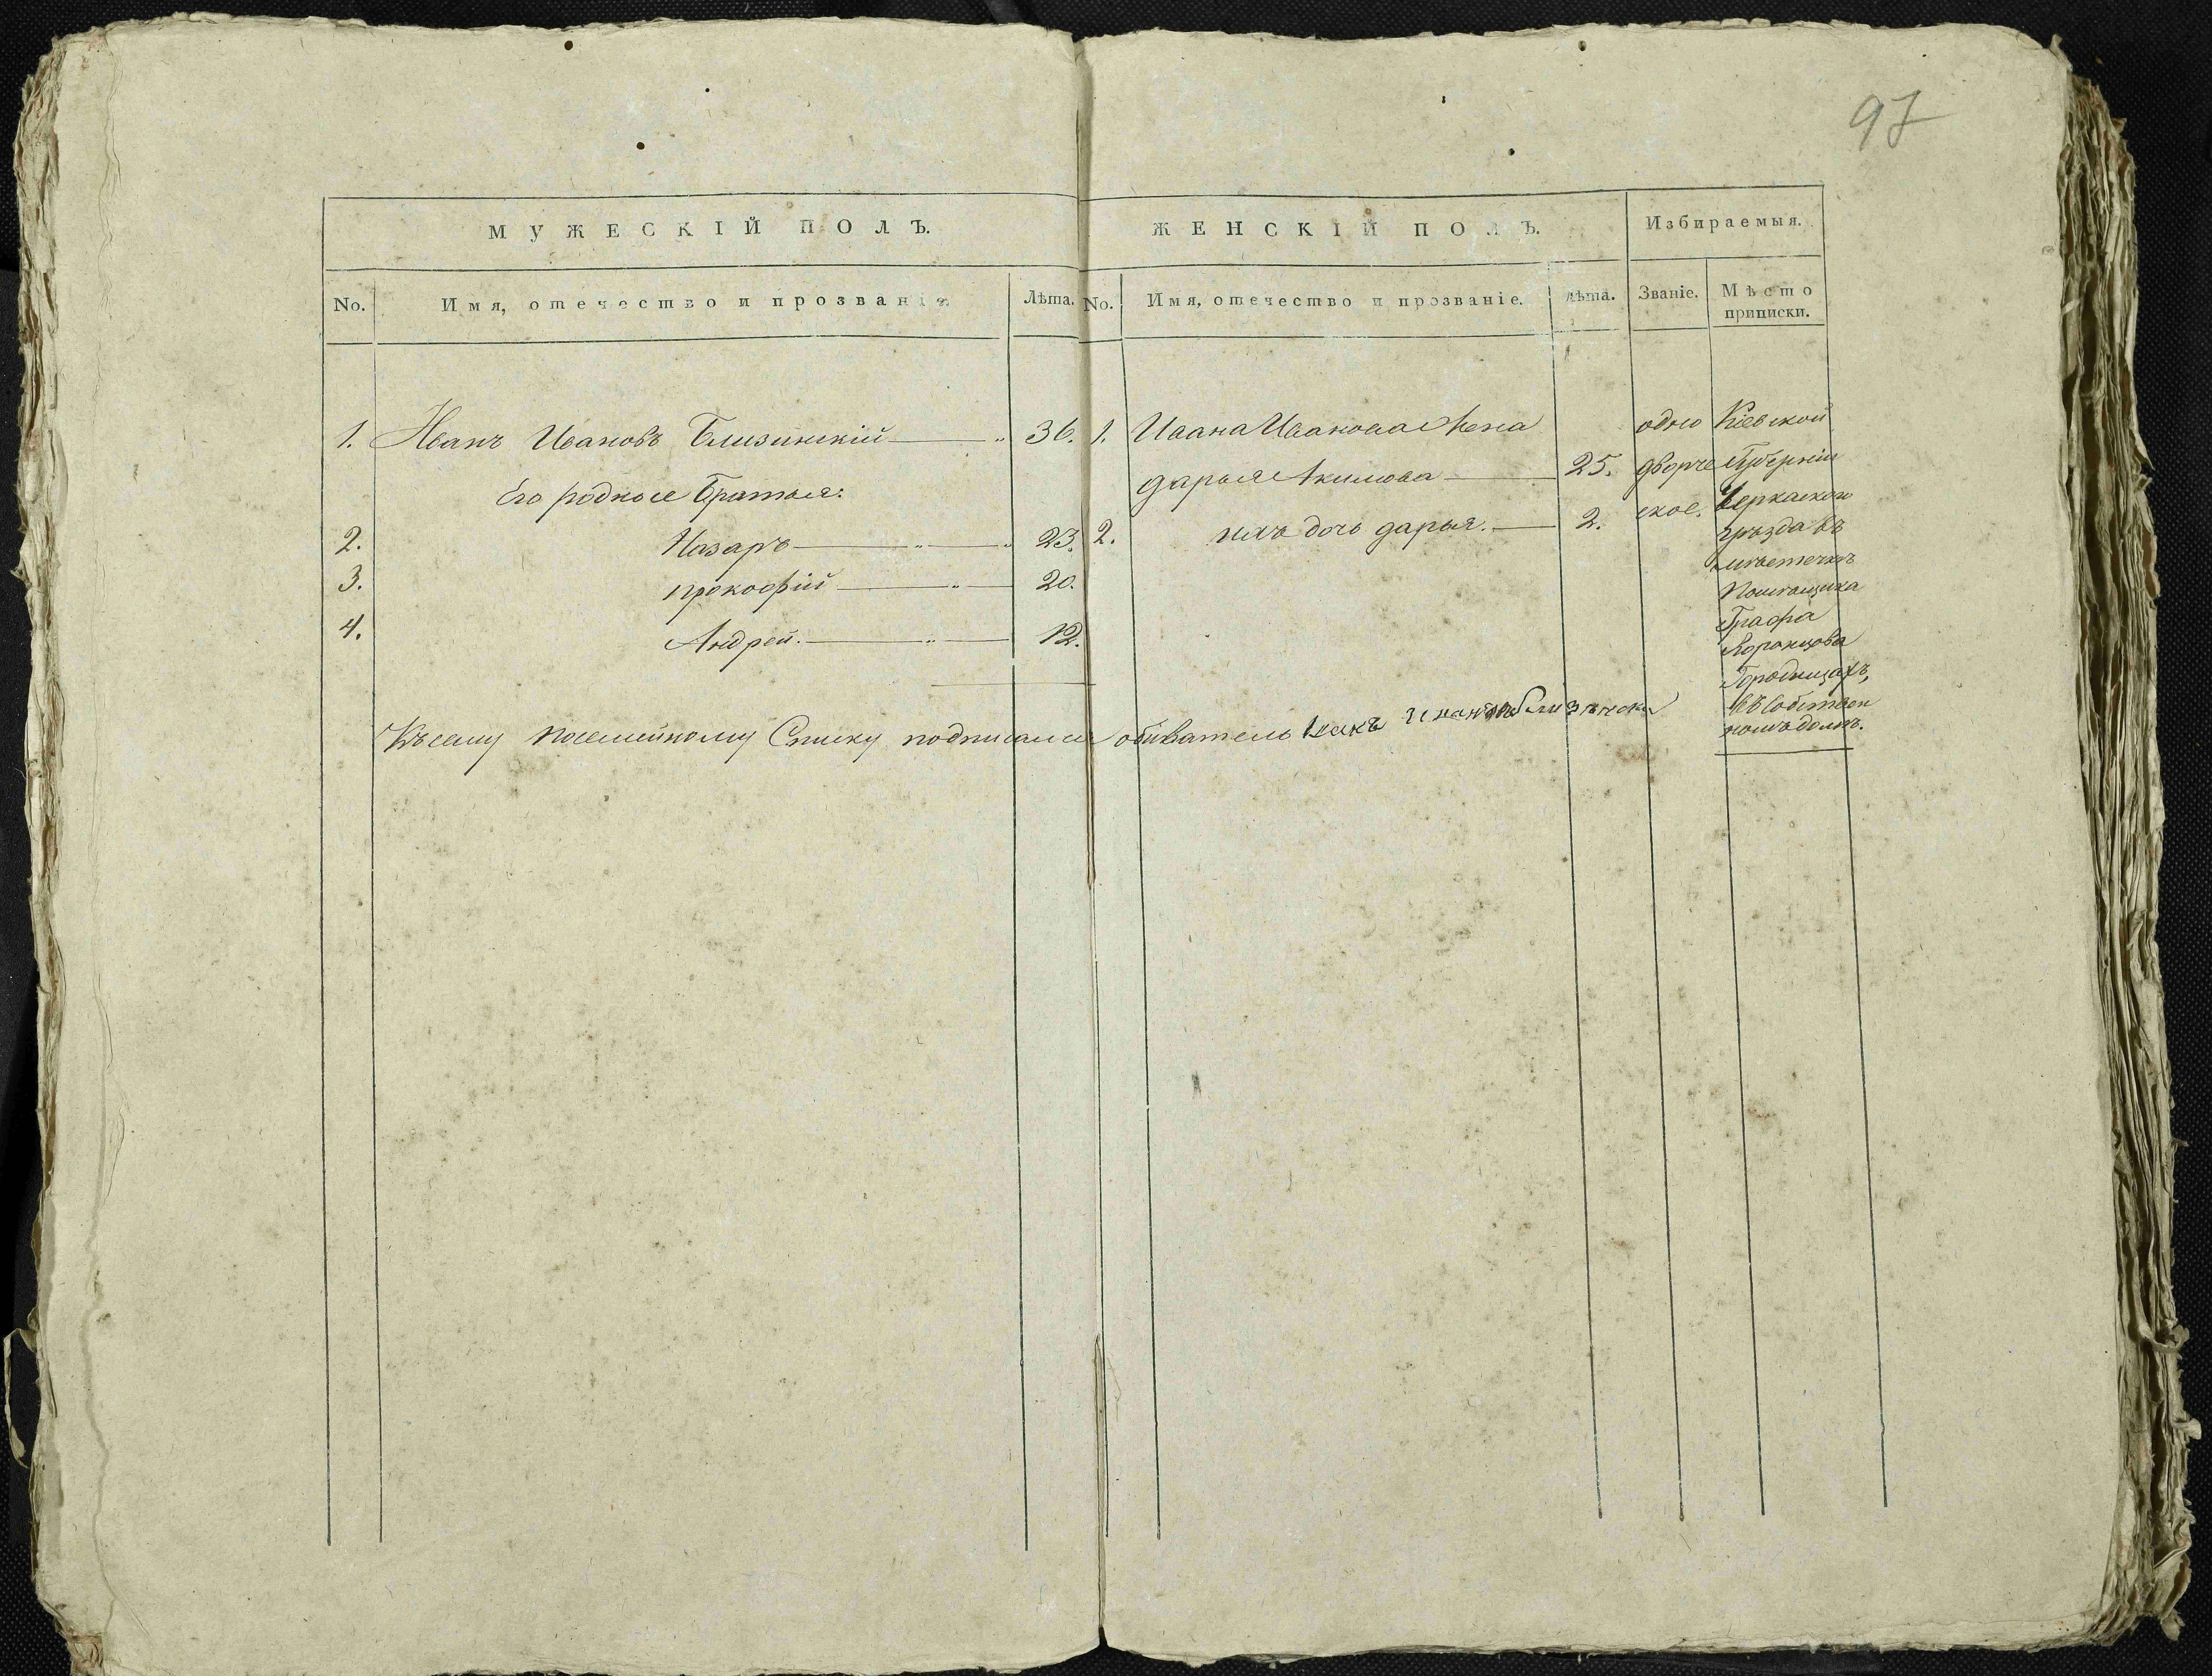 97
МУЖЕСКІЙ ПОЛЪ.
No. Имя, отечество и прозваніе Лѣта.
1. Иванъ Ивановъ Близинскій 36.
Его родные братья:
2. Назаръ 23.
3. прокофій 20.
4. Андрей. 12.
ЖЕНСКІЙ ПОЛЪ. Избираемыя.
No. Имя, отечество и прозваніе. лѣта. Званіе. Мѣсто
приписки.
1. Ивана Иванова Жена
дарья Акимова 25.
2. ихъ дочь дарья. 2.
одно
дворче
ское.
Кіевской
Губерніи
Черкаского
уѣзда въ
мѣстечкѣ
Помѣщика
Графа
Воронцова
Городищахъ,
въ собствен
номъ домѣ.
Къ сему посемейному Списку подписался обыватель Иванъ